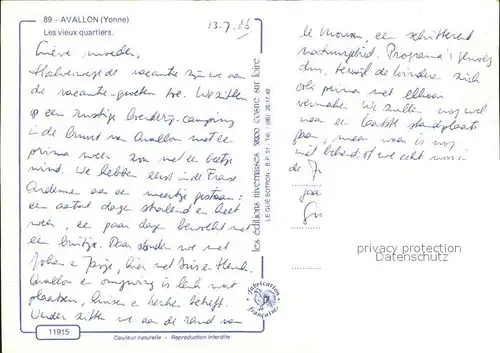 89 - AVALLON (Yonne)
Les vieux quartiers.
13-7-'86
Lieve moeder,
Halverwege de vacantie zijn we aan
de vacantie-groeten toe. We zitten
op een rustige boerderij-camping
in de buurt van Avallon met een
prima weer zon met een beetje
wind. We hebben eerst in de Franse
Ardennen aan een meertje gestaan:
een aantal dagen stralend en heet
weer, een paar dagen bewolkt met
een buitje. Daar stonden we met
Johan en, hier met en Henk.
Avallon en omgeving is leuk wat
plaatsen, huizen en kerken betreft.
Verder zitten we aan de rand van
le Morvan, een schitterend
natuurgebied. Programma's genoeg
dus, terwijl de kinderen zich
ook prima met elkaar
vermaken. We zullen nog wel
naar een laatste standplaats
gaan, maar waar is nog
niet bekend; of we echt nog in
de
les éditions nivernaises 58200 cosne sur loire
LE GUÉ BOTRON - B.P. 51 - Tél. (86) 28.17.49
privacy protection
Datenschutz
Fabrication
Française
11915
Couleur naturelle - Reproduction interdite